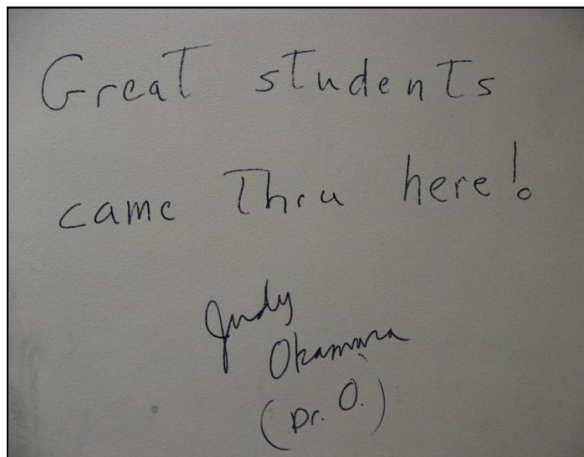 Great students
came Thru here!
Judy
Okamura
(Dr. O.)